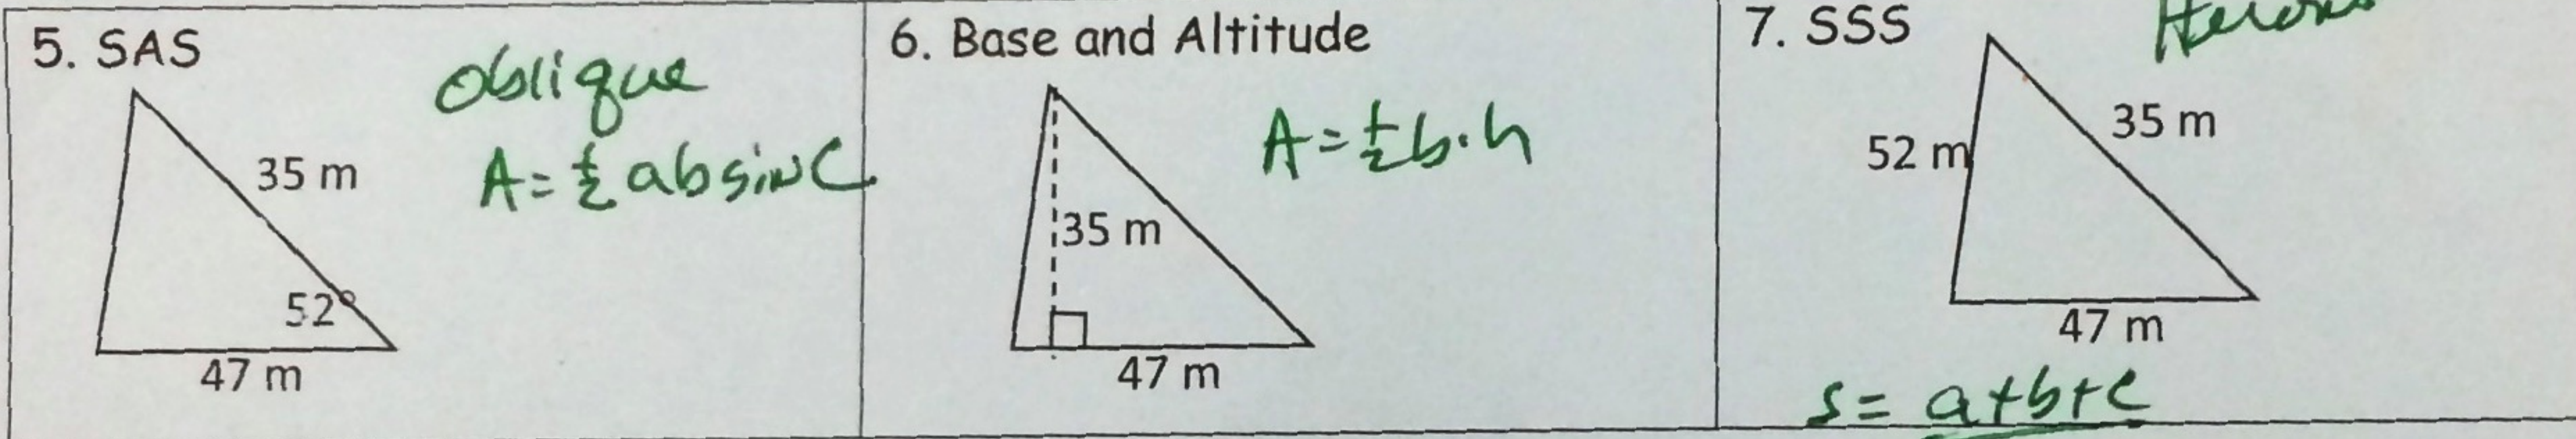 5. SAS
Oblique
A = ½ ab sin C
35 m
52°
47 m
6. Base and Altitude
A = ½ b · h
35 m
47 m
7. SSS
52 m
35 m
47 m
s = a+b+c